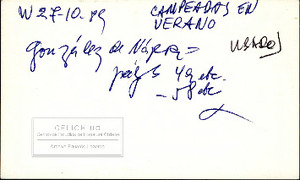 W 27-10-89
CAMPEADAS EN
VERANO
USADO
González de Nájera =
págs 49 etc.
- 58 etc
CELICH UC
Centro de Estudios de Literatura Chilena